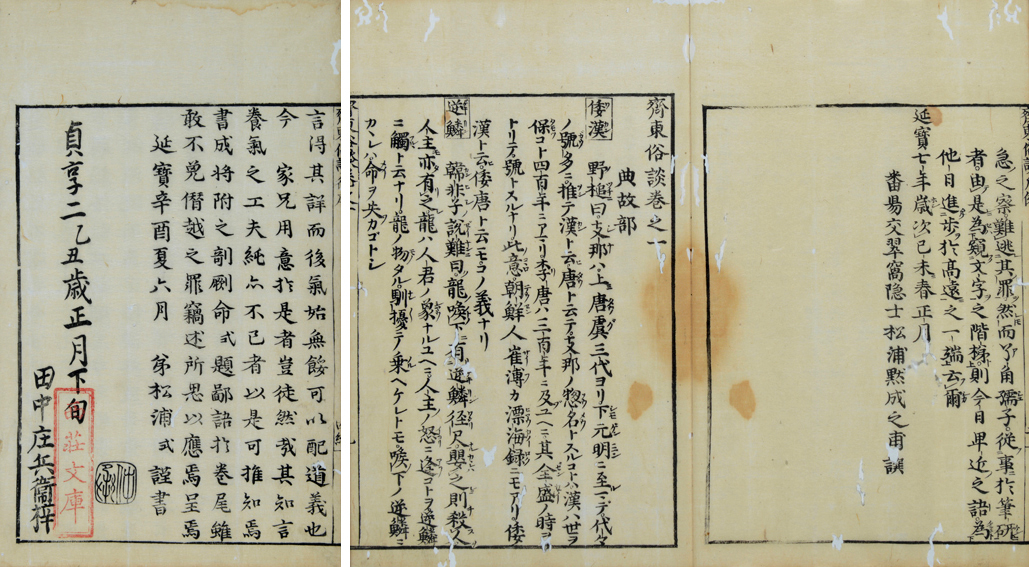 急之察難逃其罪然而了角孺子從事於筆研
者由是為窺文字之階梯則今日卑近之語為
他日進步於高遠之一端云爾
延寶七年歲次己未春正月
番昜交翠窩隐士松浦黙成之甫識
齊東俗談巻之一
典故部
倭漢 野槌曰支那ハ上唐虞三代ヨリ下元明ニ至マテ代々
ノ號多ニ推テ漢ト云唐ト云テ支那ノ惣名トスルコハ漢ハ世ヲ
保コト四百年ニアマリ李唐ハ三百年ニ及ユヘニ其全盛ノ時ヲ
トリテ號トスルナリ此意朝鮮人崔溥カ漂海録ニモアリ倭
漢ト云倭唐ト云モコノ義ナリ
逆鱗 韓非子説難曰龍喉下有逆鱗径尺嬰之則殺人
人主亦有之龍ハ人君ノ象ナルユヘニ人主ノ怒ニ逢コトヲ逆鱗
ニ觸ト云ナリ龍ノ物タル馴擾テ乗ヘケレトモ喉下ノ逆鱗ニ
カヽレハ命ヲ失カコトシ
言得其詳而後氣始無餒可以配道義也
今 家兄用意於是者豈徒然哉其知言
養氣之工夫純亦不已者以是可推知焉
書成将附之剞劂命弍題鄙語於巻尾雖
敢不免僭越之罪竊述所思以應焉呈焉
延寶辛酉夏六月 弟松浦弍謹書
貞享二乙丑歳正月下旬
田中庄兵衞梓
莊文庫